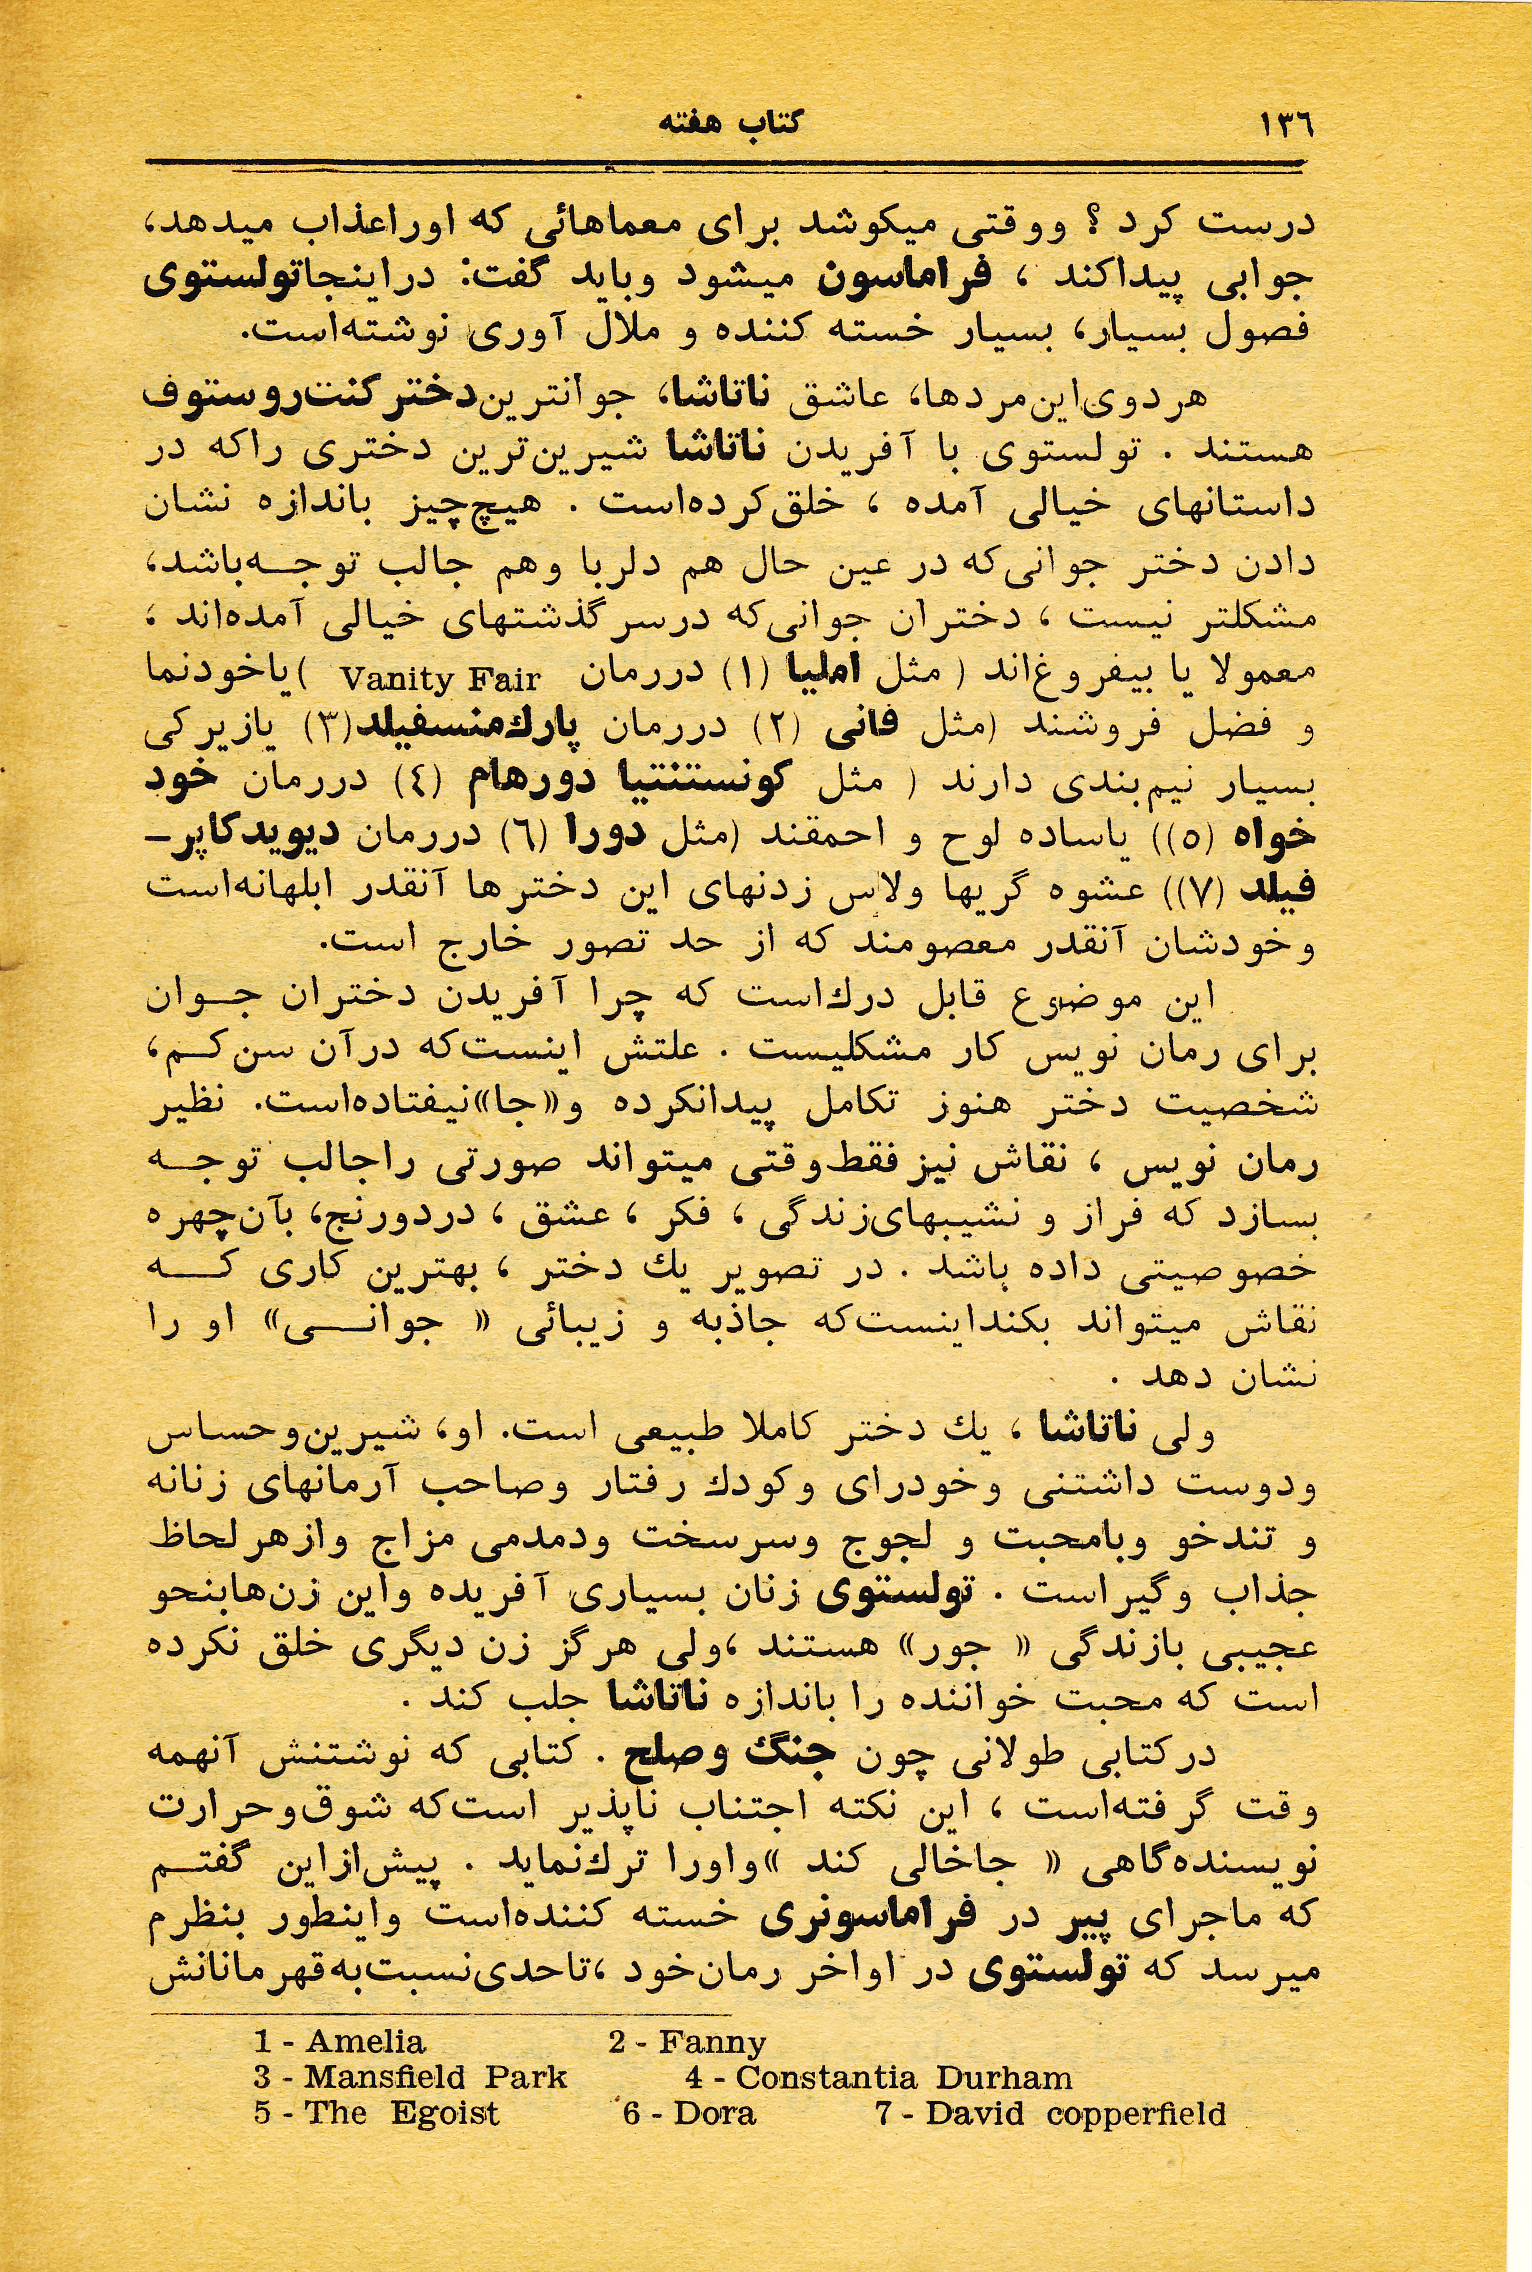 ۱۳٦ کتاب هفته
درست کرد ؟ ووقتی میکوشد برای معماهائی که اوراعذاب میدهد،
جوابی پیداکند ، فراماسون میشود وباید گفت: دراینجاتولستوی
فصول بسیار، بسیار خسته کننده و ملال آوری نوشته‌است.
هردوی‌این‌مردها، عاشق ناتاشا، جوانترین‌دخترکنت‌روستوف
هستند . تولستوی با آفریدن ناتاشا شیرین‌ترین دختری راکه در
داستانهای خیالی آمده ، خلق‌کرده‌است . هیچ‌چیز باندازه نشان
دادن دختر جوانی‌که در عین حال هم دلربا وهم جالب توجـه‌باشد،
مشکلتر نیست ، دختران جوانی‌که درسرگذشتهای خیالی آمده‌اند ،
معمولا یا بیفروغ‌اند ( مثل املیا (۱) دررمان Vanity Fair )یاخودنما
و فضل فروشند (مثل فانی (۲) دررمان پارك‌منسفیلد(۳) یازیرکی
بسیار نیم‌بندی دارند ( مثل کونستنتیا دورهام (٤) دررمان خود
خواه (٥)) یاساده لوح و احمقند (مثل دورا (٦) دررمان دیویدکاپر–
فیلد (۷)) عشوه گریها ولاس زدنهای این دخترها آنقدر ابلهانه‌است
وخودشان آنقدر معصومند که از حد تصور خارج است.
این موضوع قابل درك‌است که چرا آفریدن دختران جـوان
برای رمان نویس کار مشکلیست . علتش اینست‌که درآن سن‌کـم،
شخصیت دختر هنوز تکامل پیدانکرده و«جا»نیفتاده‌است. نظیر
رمان نویس ، نقاش نیزفقط‌وقتی میتواند صورتی راجالب توجـه
بسازد که فراز و نشیبهای‌زندگی ، فکر ، عشق ، دردورنج، بآن‌چهره
خصوصیتی داده باشد . در تصویر یك دختر ، بهترین کاری کـه
نقاش میتواند بکنداینست‌که جاذبه و زیبائی « جوانـی» او را
نشان دهد .
ولی ناتاشا ، یك دختر کاملا طبیعی است. او، شیرین‌وحساس
ودوست داشتنی وخودرای وکودك رفتار وصاحب آرمانهای زنانه
و تندخو وبامحبت و لجوج وسرسخت ودمدمی مزاج وازهرلحاظ
جذاب وگیراست . تولستوی زنان بسیاری آفریده واین زن‌هابنحو
عجیبی بازندگی « جور» هستند ،ولی هرگز زن دیگری خلق نکرده
است که محبت خواننده را باندازه ناتاشا جلب کند .
درکتابی طولانی چون جنگ وصلح . کتابی که نوشتنش آنهمه
وقت گرفته‌است ، این نکته اجتناب ناپذیر است‌که شوق‌وحرارت
نویسنده‌گاهی « جاخالی کند »واورا ترك‌نماید . پیش‌ازاین گفتـم
که ماجرای پیر در فراماسونری خسته کننده‌است واینطور بنظرم
میرسد که تولستوی در اواخر رمان‌خود ،تاحدی‌نسبت‌به‌قهرمانانش
1 - Amelia 2 - Fanny
3 - Mansfield Park 4 - Constantia Durham
5 - The Egoist 6 - Dora 7 - David copperfield